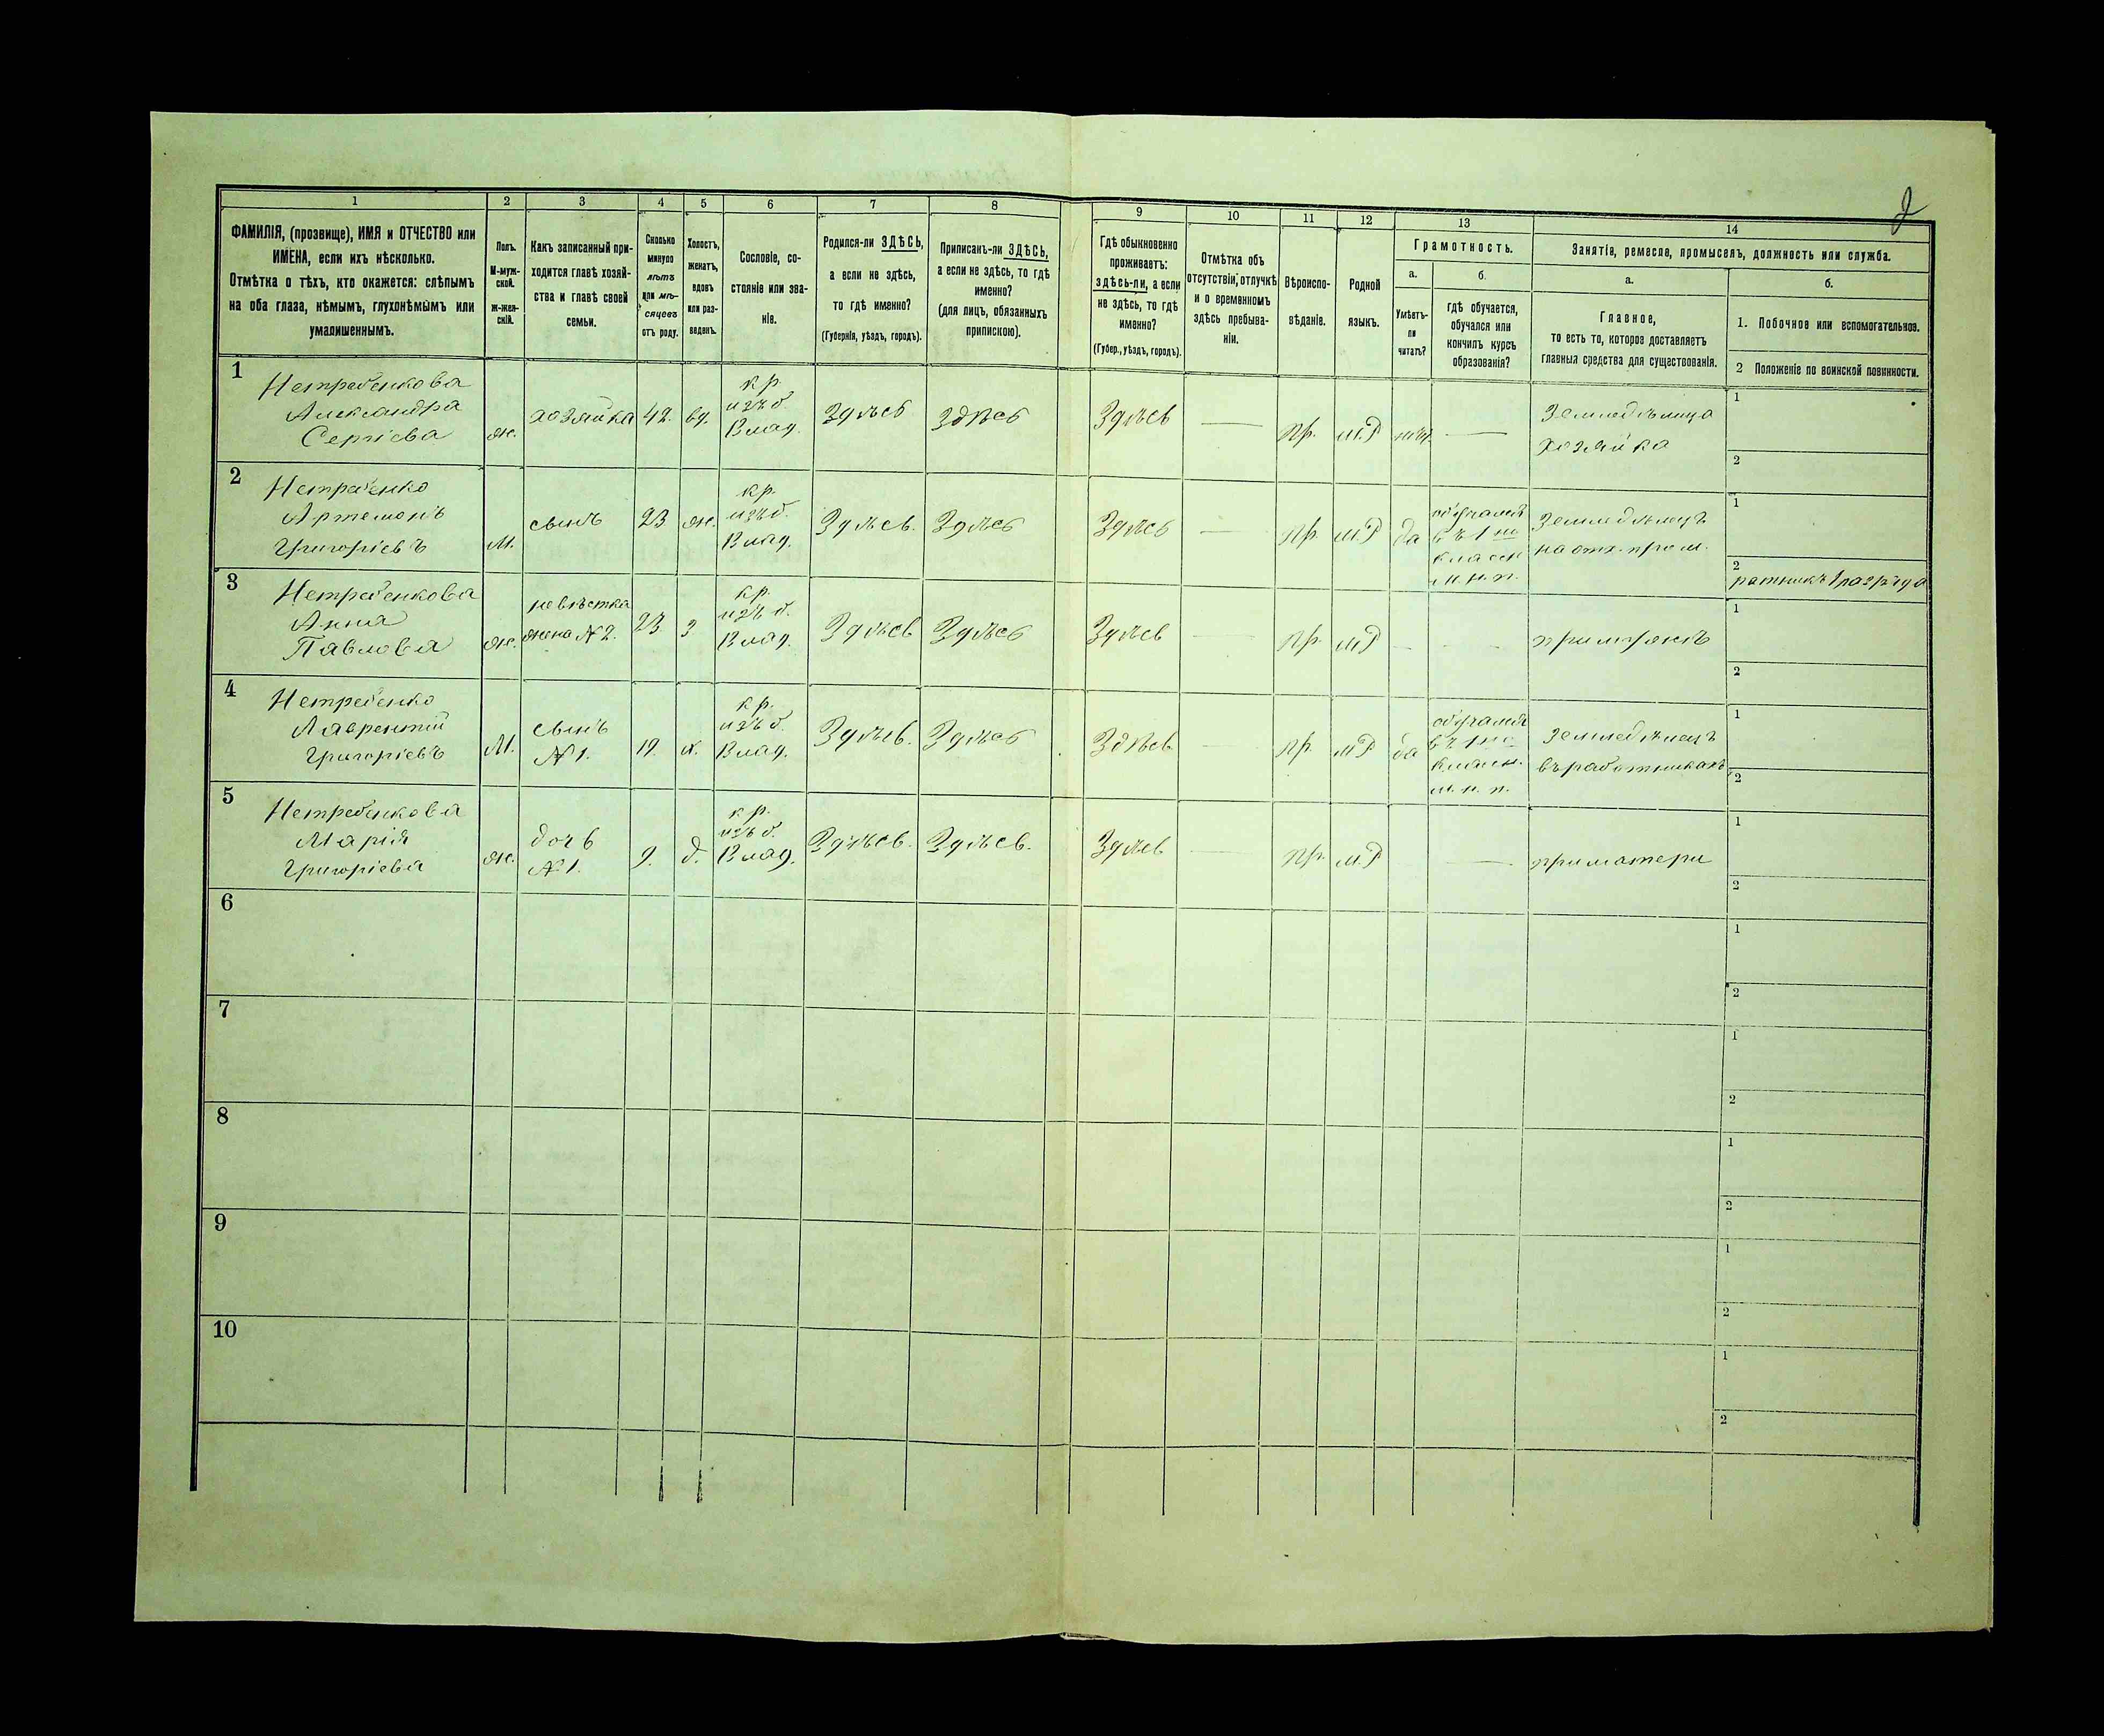 2
1
2
3
4
5
6
7
8
9
10
11
12
13
14
ФАМИЛІЯ, (прозвище), ИМЯ и ОТЧЕСТВО или
ИМЕНА, если ихъ нѣсколько.
Отмѣтка о тѣхъ, кто окажется: слѣпымъ
на оба глаза, нѣмымъ, глухонѣмымъ или
умалишеннымъ.
Полъ.
М-муж-
ской.
Ж-жен-
скій.
Какъ записанный при-
ходится главѣ хозяй-
ства и главѣ своей
семьи.
Сколько
минуло
лѣтъ
или мѣ-
сяцевъ
отъ роду.
Холостъ,
женатъ,
вдовъ
или раз-
веденъ.
Сословіе, со-
стояніе или зва-
ніе.
Родился-ли ЗДѢСЬ,
а если не здѣсь,
то гдѣ именно?
(Губернія, уѣздъ, городъ).
Приписанъ-ли ЗДѢСЬ,
а если не здѣсь, то гдѣ
именно?
(для лицъ, обязанныхъ
припискою).
Гдѣ обыкновенно
проживаетъ:
здѣсь-ли, а если
не здѣсь, то гдѣ
именно?
(Губер., уѣздъ, городъ).
Отмѣтка объ
отсутствіи, отлучкѣ
и о временномъ
здѣсь пребыва-
ніи.
Вѣроиспо-
вѣданіе.
Родной
языкъ.
Грамотность.
а.
Умѣетъ-
ли
читать?
б.
гдѣ обучается,
обучался или
кончилъ курсъ
образованія?
Занятія, ремесла, промыселъ, должность или служба.
а.
Главное,
то есть то, которое доставляетъ
главныя средства для существованія.
б.
1. Побочное или вспомогательное.
2 Положеніе по воинской повинности.
1
Нетребенкова
Александра
Сергіева
ж.
хозяйка
42.
вд.
кр.
изъ б.
Влад.
Здѣсь
Здѣсь
Здѣсь
—
пр.
м.Р
нѣт.
—
Земледѣлица
хозяйка
1
2
2
Нетребенко
Артемонъ
Григоріевъ
М.
сынъ
23
ж.
кр.
изъ б.
Влад.
Здѣсь.
Здѣсь
Здѣсь
—
пр.
м.Р
да
обучался
въ 1 но
класн
м.н.п.
Земледѣлецъ
на отх. пром.
1
2
ратникъ 1 разряда
3
Нетребенкова
Анна
Павлова
ж.
невѣстка
жена №2.
23
з
кр.
изъ б.
Влад.
Здѣсь
Здѣсь
Здѣсь
—
пр.
м.Р
—
—
при мужѣ
1
2
4
Нетребенко
Лаврентий
Григоріевъ
М.
сынъ
№1.
19.
х.
кр.
изъ б.
Влад.
Здѣсь.
Здѣсь
Здѣсь
—
пр.
м.Р
да
обучался
въ 1 но
класн.
м.н.п.
Земледѣлецъ
въ работникахъ
1
2
5
Нетребенкова
Марія
Григоріева
ж.
дочь
№1.
9.
д.
кр.
изъ б.
Влад.
Здѣсь.
Здѣсь.
Здѣсь
—
пр.
м.Р
—
при матери
1
2
6
1
2
7
1
2
8
1
2
9
1
2
10
1
2